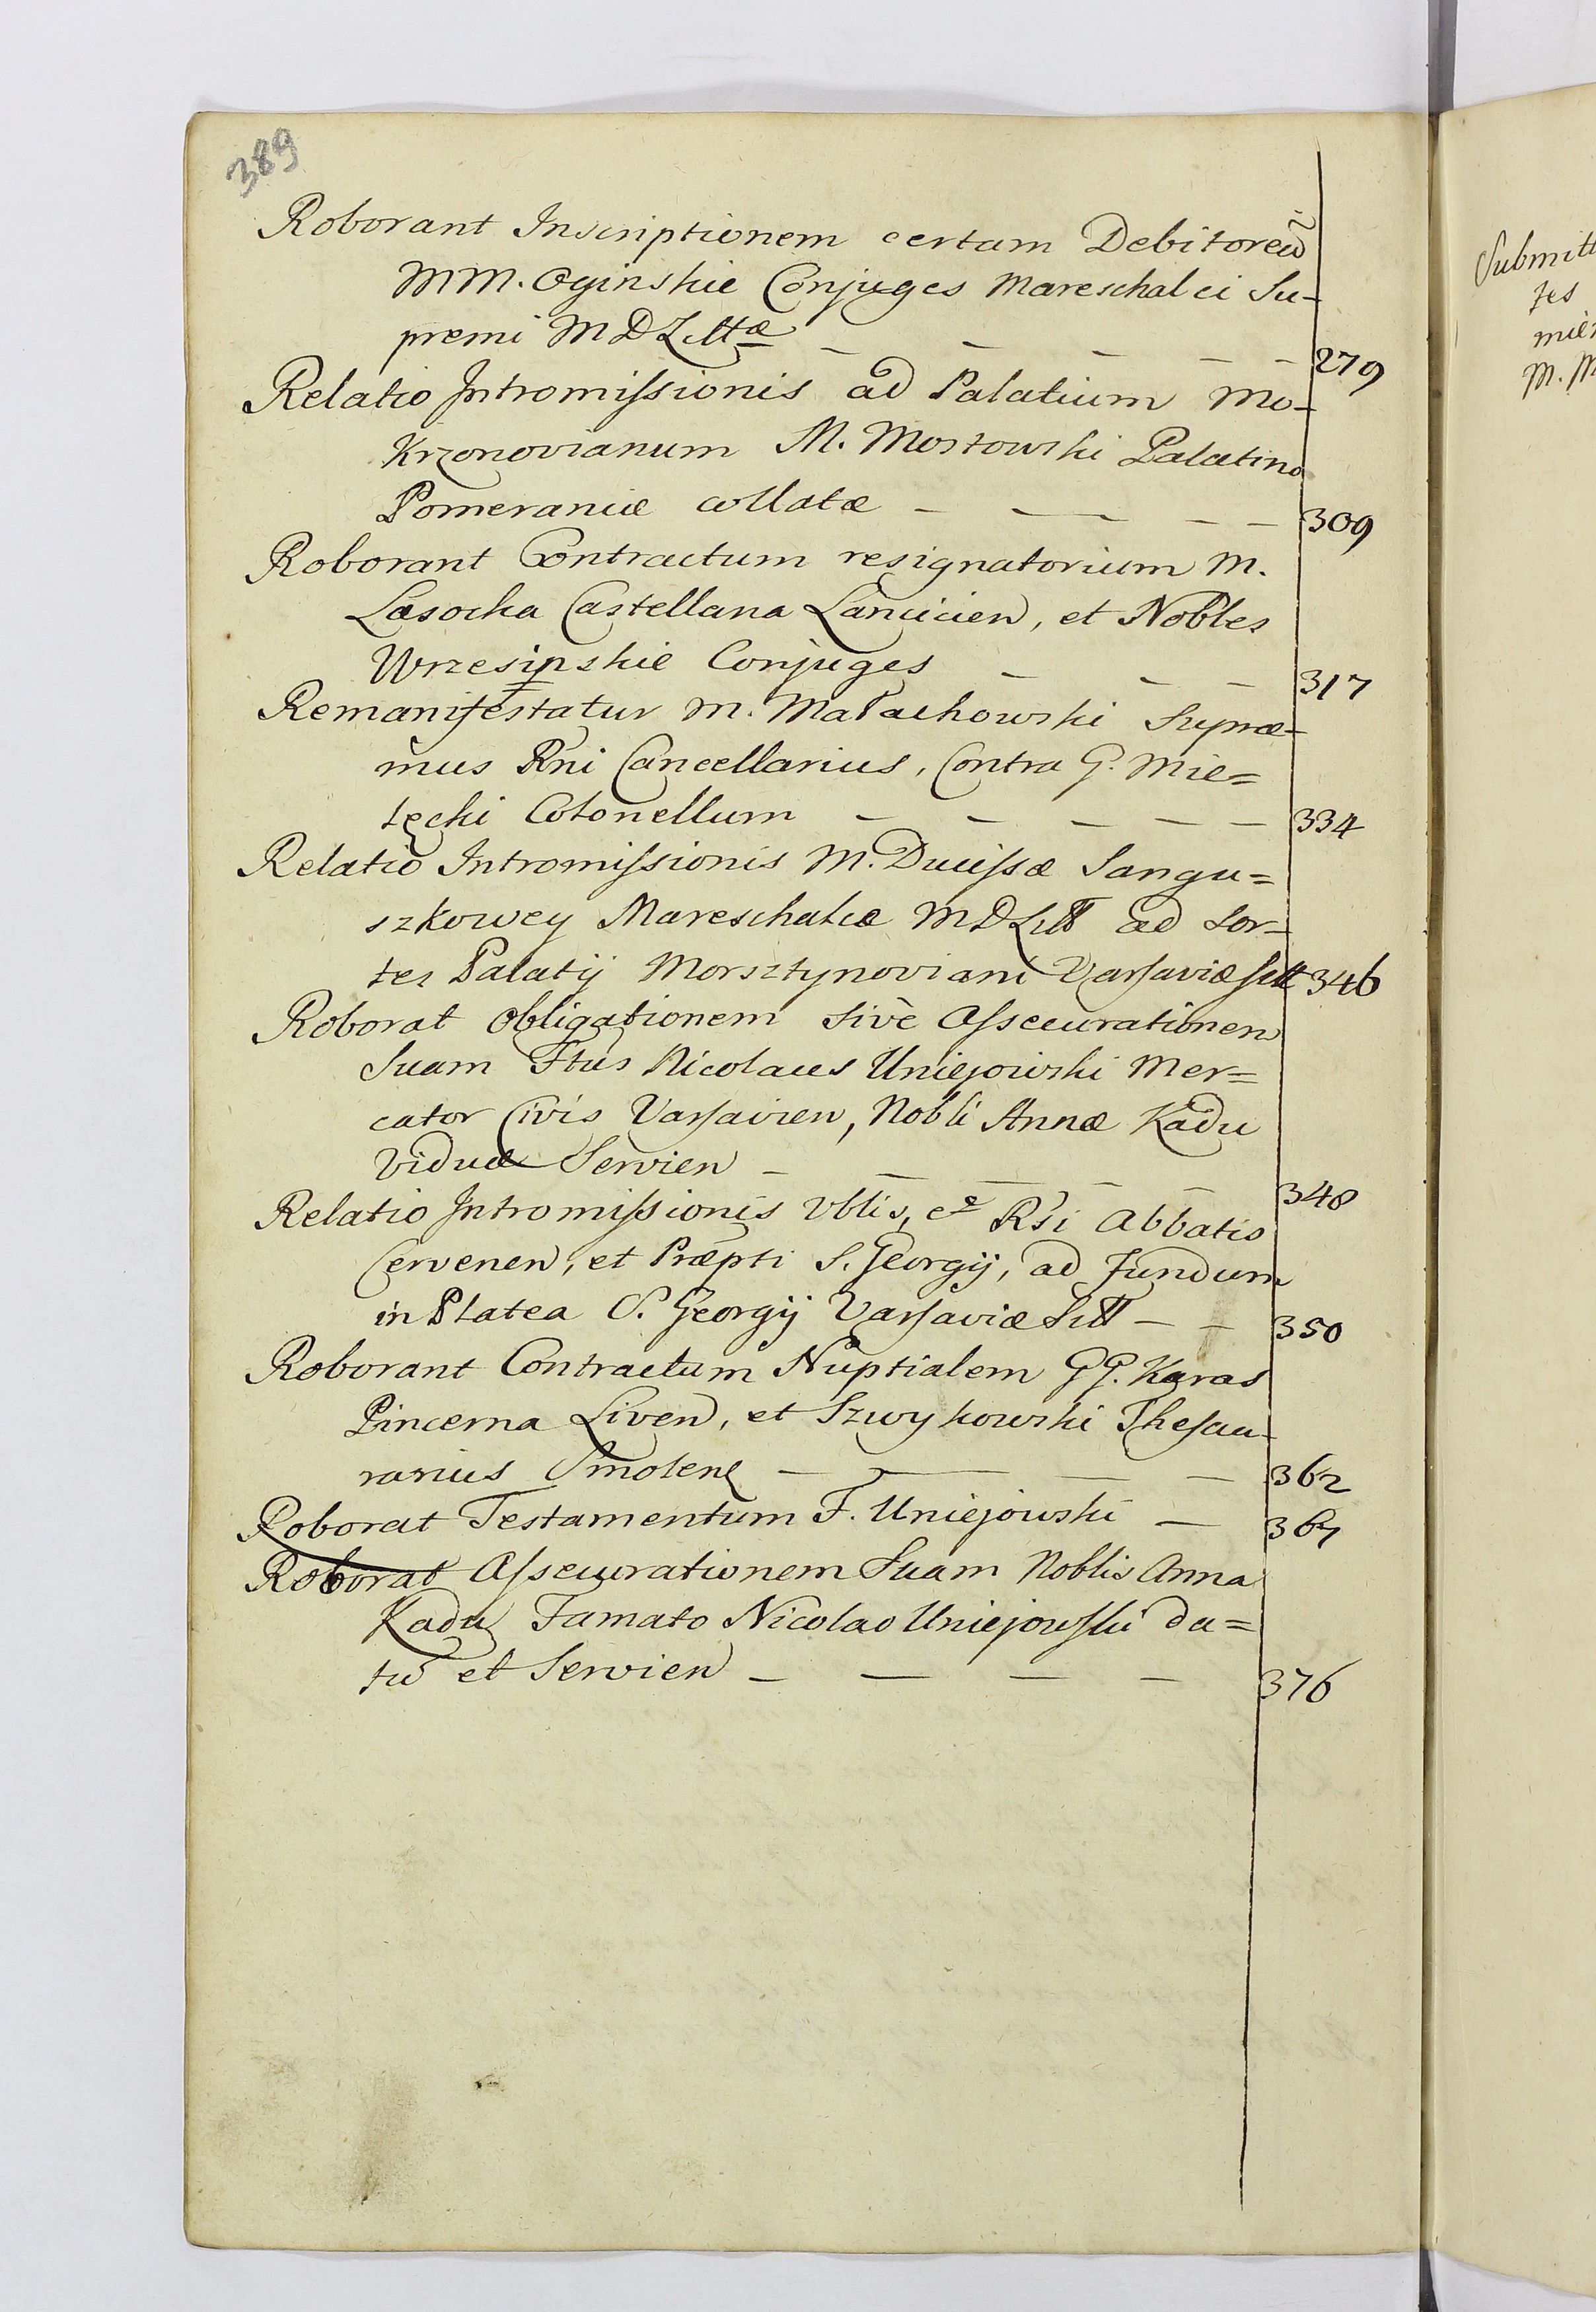 389
Roborant Inscriptionem certam Debitoreũ
MM. Oginskie Conjuges Mareschalci Su-
premi MDLittæ — — — — — 279
Relatio Intromissionis ad Palatium Mo-
krzonovianum M. Mostowski Palatino
Pomeraniæ collatæ — — — — 309
Roborant Contractum resignatorium M.
Lasocka Castellana Lancicien, et Nobles
Wrzesinskie Conjuges — — — 317
Remanifestatur M. Małachowski Supræ-
mus Rni Cancellarius, Contra G. Mie=
tecki Colonellum — — — — — 334
Relatio Intromissionis M. Ducissæ Sangu=
szkowey Mareschalcæ MDLitt ad Sor-
tes Palatij Morsztynoviani Varsaviæ sitt 346
Roborat Obligationem sivè Assecurationem
Suam Ftus Nicolaus Uniejowski Mer=
cator Civis Varsavien, Nobli Annæ Kadu
Viduæ Servien — — — — — 348
Relatio Intromissionis Vblis, et Rsi Abbatis
Cervenen, et Præpti S. Georgij, ad Fundum
in Platea S. Georgij Varsaviæ Sitt — — 350
Roborant Contractum Nuptialem GG. Karas
Pincerna Liven, et Szwykowski Thesau-
rarius Smolen — — — — 362
Roborat Testamentum F. Uniejowski — 367
Roborat Assecurationem Suam Noblis Anna
Kadu Famato Nicolao Uniejowski da=
tũ et Servien — — — — 376
Submitt
tes
mier
M. M